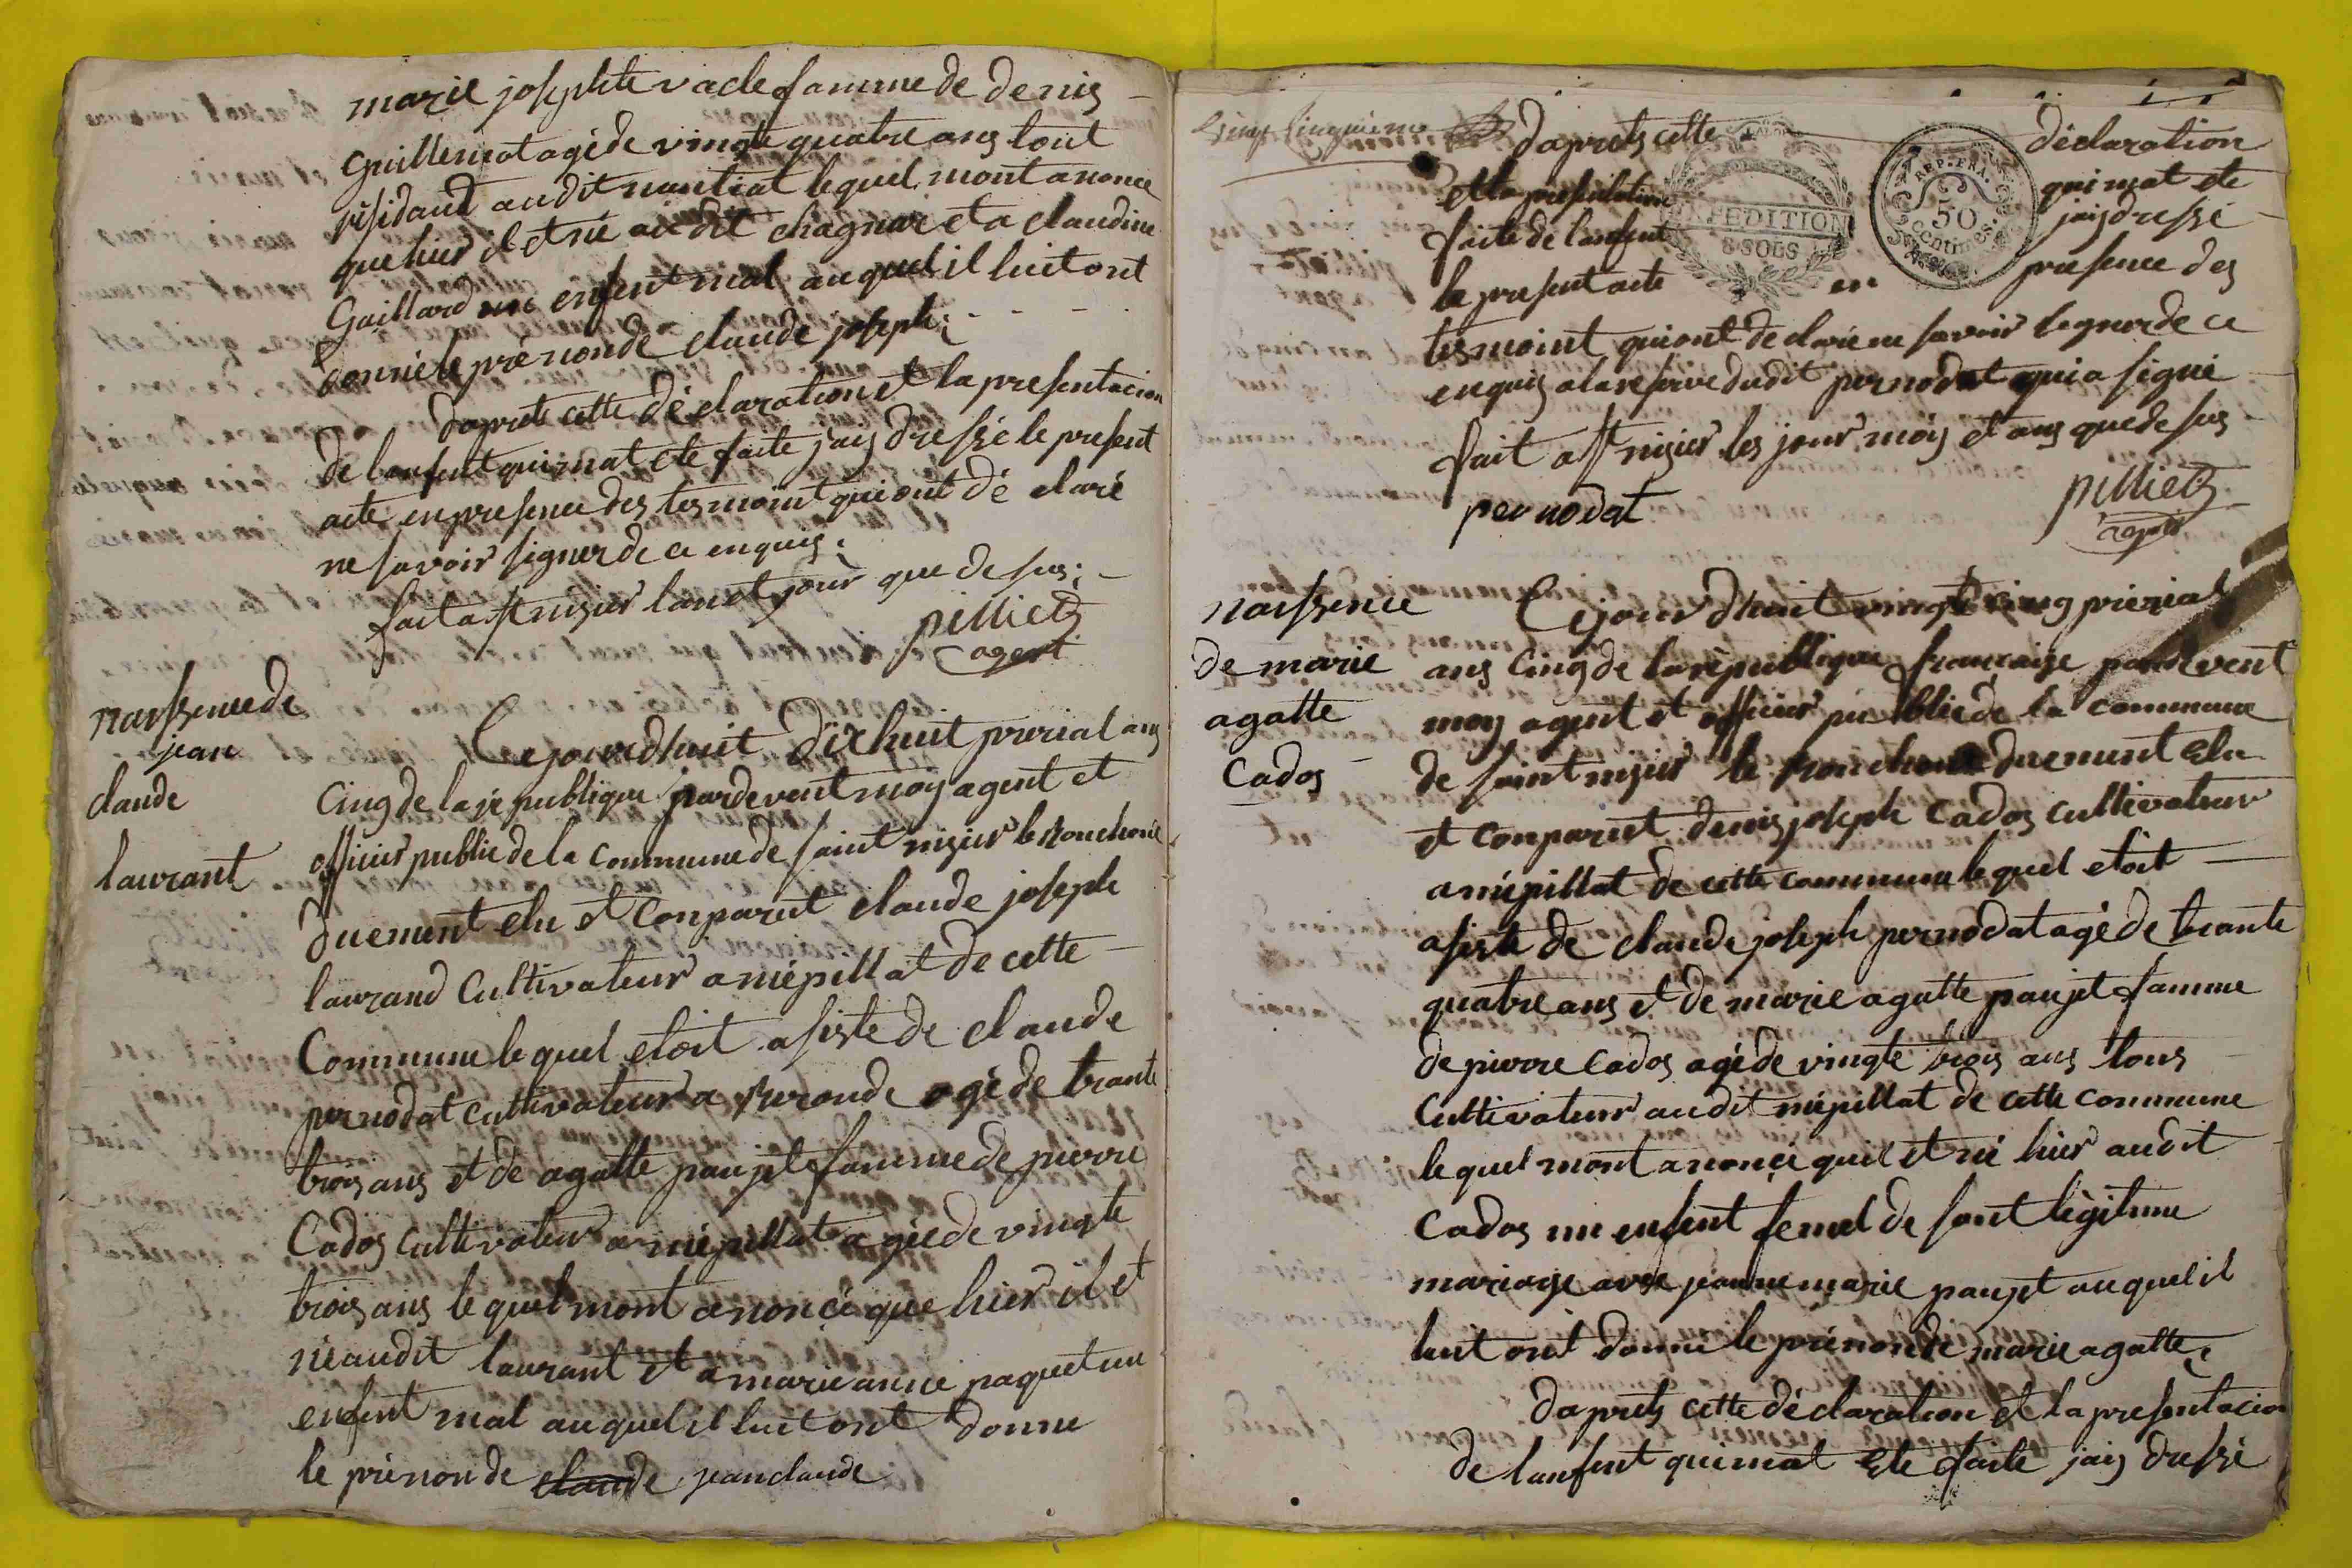 marie josephte vacle famme de denis
guillemat agé de vingte quatre ans tout
résidand audit nantiat lequel mont anonce
que hier il et né audit chagniar et a claudine
Gaillard un enfent mal auquel il luit ont
donné le prénon de claude joseph;
daprets cette déclaration et la presentacion
de lanfent qui mat ete faite jais dressé le present
acte en presence des tesmoint qui ont dé claré
ne savoir signer de ce enquis.
fait a st nisier lan et jour que desus;
pilliet
agent
naissence de
jean
claude
laurant
Cejourdhuit dix huit prerial ans
Cinq de la république pardevent moy agent et
officier public de la commune de saint nisier le bouchoux
duement elu et conparut claude joseph
laurand Cultivateur a mépillat de cette
Commune le quel etoit asiste de claude
pernodat cultivateur a ronde agé de trante
trois ans et de agatte paujet famme de pierre
Cados cultivateur a mépillat agée de vingte
trois ans le quel mont anoncé que hier il et
né audit laurant et a marie anne paquet un
enfent mal auquel il luit ont donne
le prénon de claude jean claude
daprets cette déclaration
et la presentation qui mat ete
faite de lanfent jais dressé
le present acte en presence des
tesmoint qui ont declaré ne savoir signer de ce
enquis a la reserve dudit pernodat qui a signé
fait a st nisier les jour mois et ans que desus
pernodat
pilliet
agent
REP. FRA.
50
centimes
EXPEDITION
8 SOLS
naissence
de marie
agatte
Cados
Cejourdhuit vingt cinq prérial
ans Cinq de la république française pardevent
moy agent et officier publicde la commune
de saint nisier le bouchoux duement elu
et conparut denis joseph Cados cultivateur
a mépillat de cette commune lequel etoit
asiste de claude joseph pernodat agé de trante
quatre ans et de marie agatte paujet famme
de pierre Cados agé de vingte trois ans tous
Cultivateur audit mépillat de cette commune
le quel mont anoncé quil et né hier audit
Cados un enfent femel de sont légitime
mariage avec jeanne marie paujet auquel il
luit ont donné le prénon de marie agatte;
daprets cette déclaration et la presentacion
de lanfent qui mat ete faite jais dressé